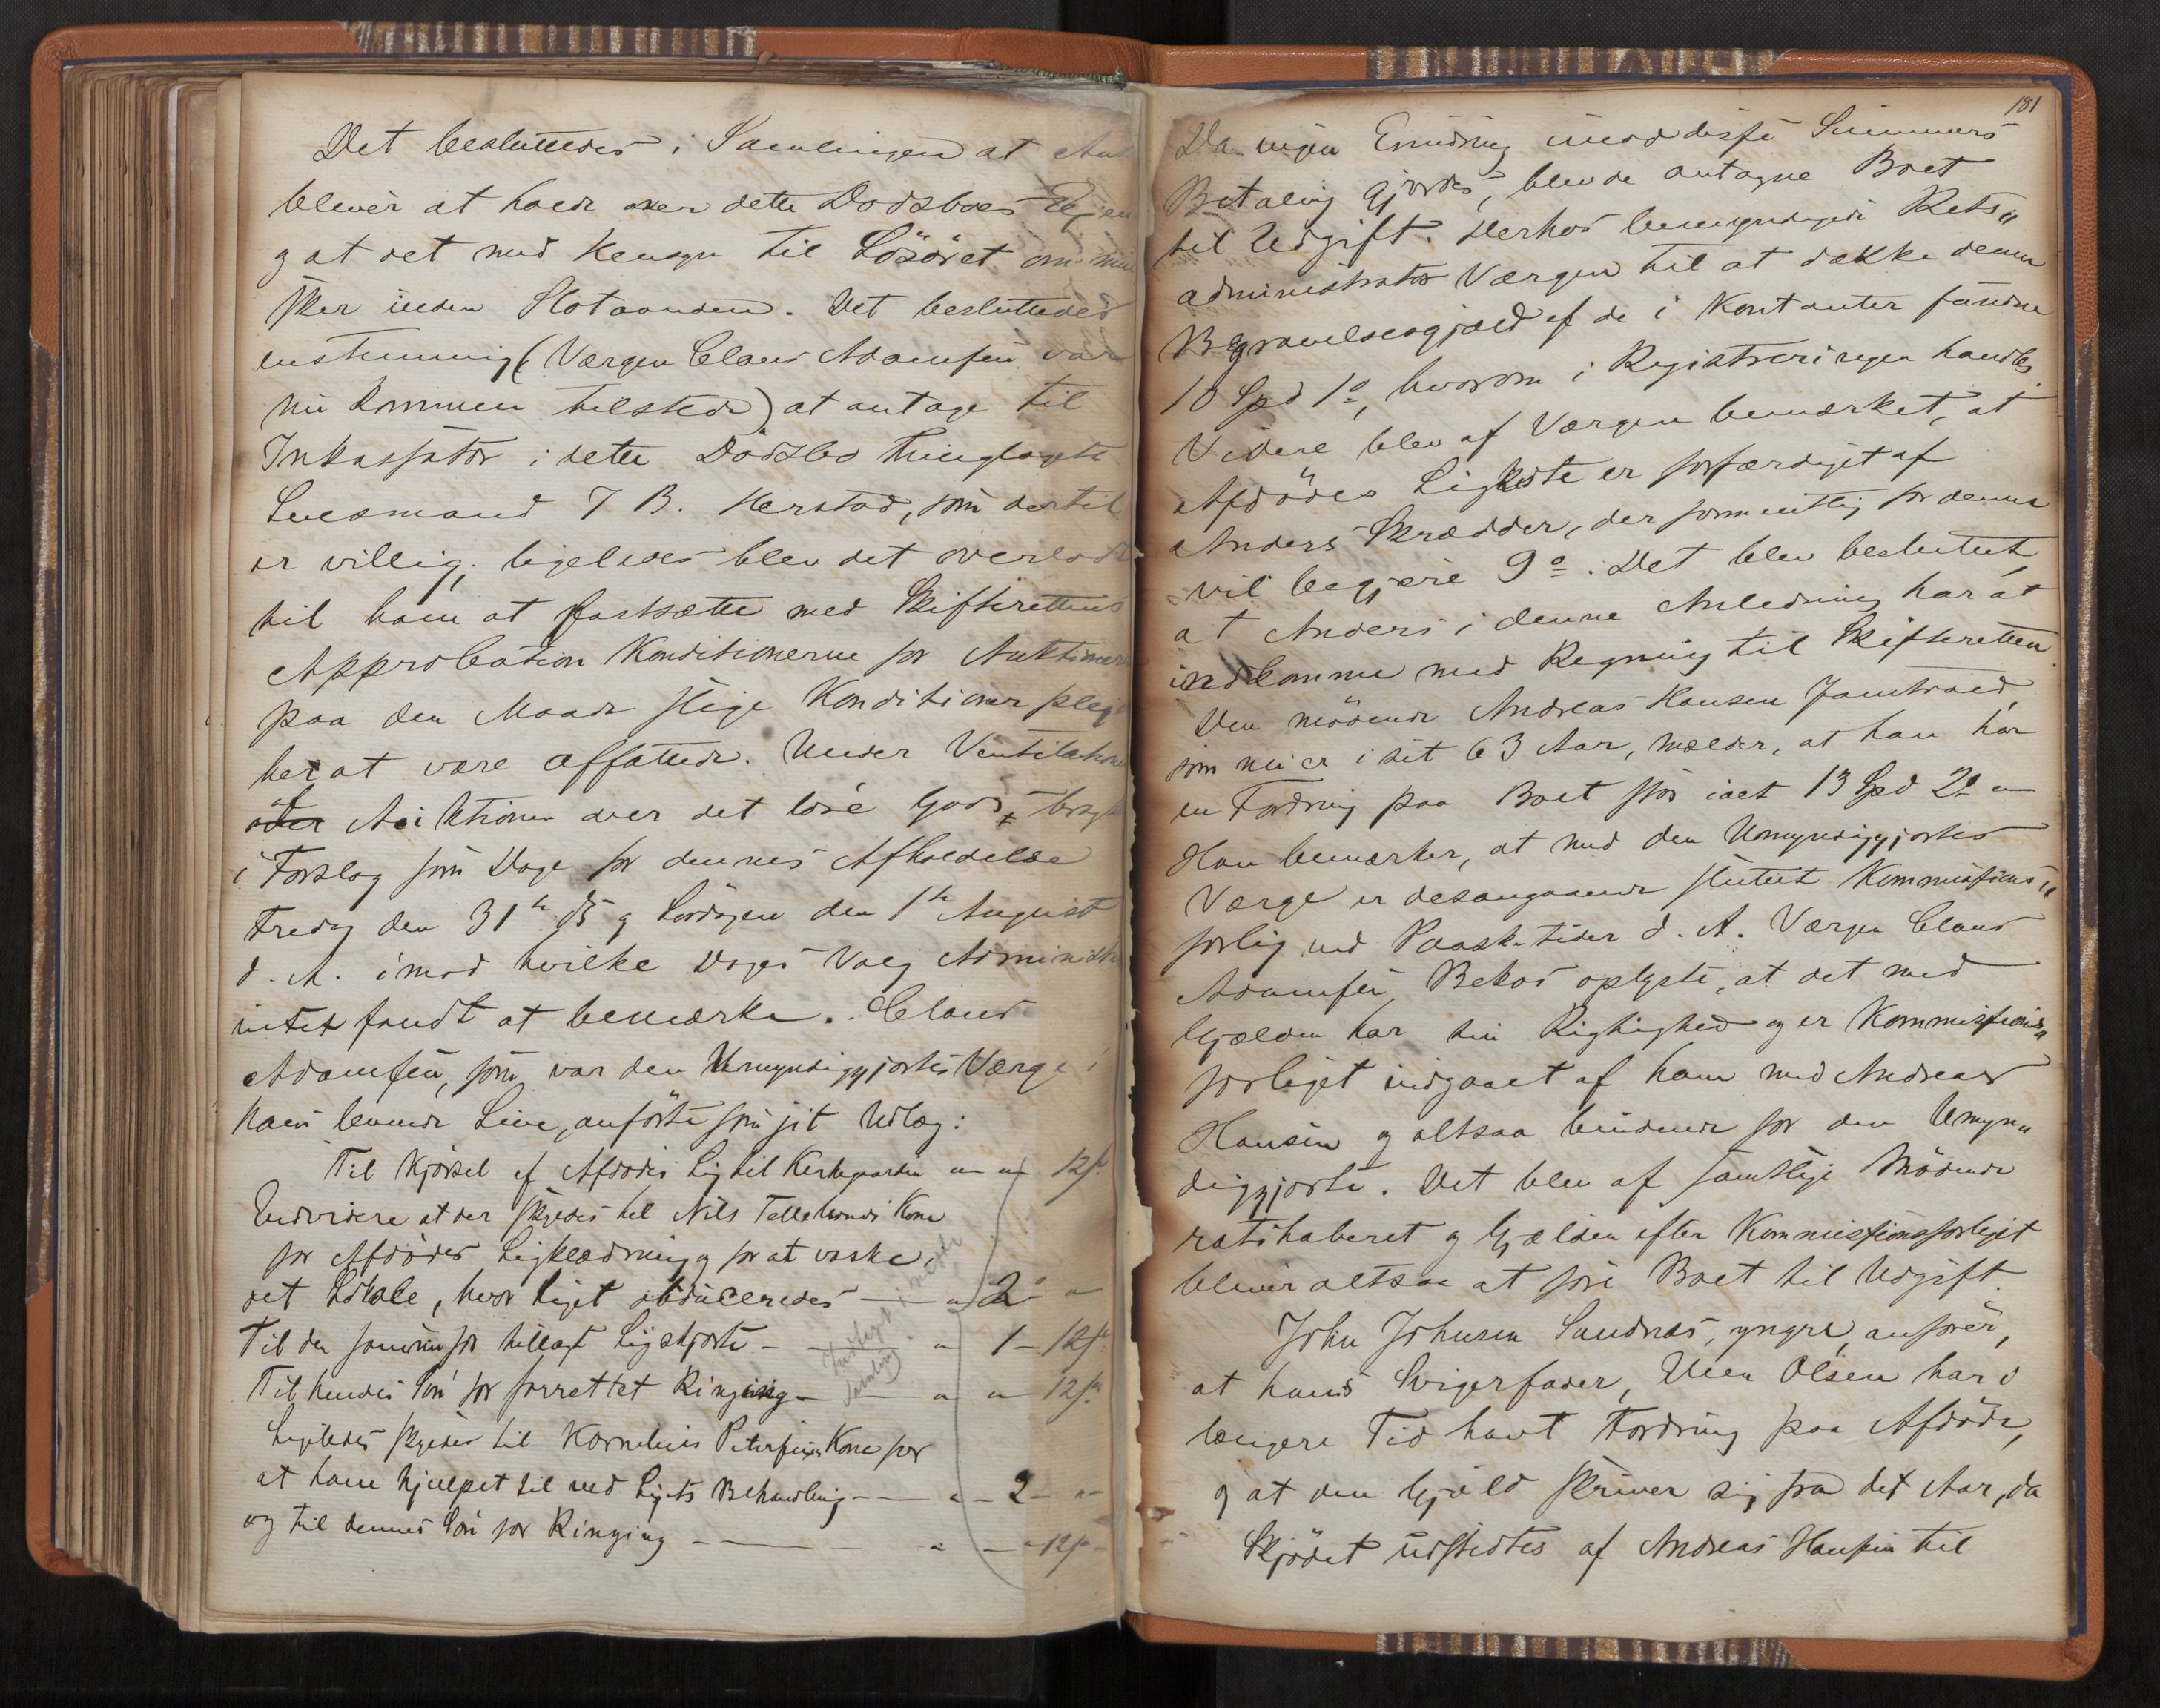 Det besluttedes i Samlingen at Auk
bliver at holde over dette Dødsboes Ejen
g at det med Hensyn til Løsøret om mu
sker inden Slotaanden. Det besluttedes
enstemmig (Værgen Claus Adamsen var
nu kommen tilstede) at antage til
Inkassator i dette Dødsbo Thinglagets
Lensmand J B. Herstad, som dertil
er villig; ligeledes blev det overladt
til ham at fastsætte med Skifterettens
Approbation Konditionerne for Auktionen
paa den Maade slige Konditioner pleje
her at være affattede. Under Ventilationen
Auktionen over det løse Gods bragtes
i Forslag som Dage for dennes Afholdelse
Fredag den 31te ds g Lørdagen den 1te August
d. A. imod hvilke Dages Valg Administr
intet fandt at bemærke. Claus
Adamsen, som var den Umyndiggjortes Værge i
hans levende Live, anførte som sit Udlæg:
Til Kjørsel af Afdødes Lig til Kirkegaarden 12 s.
Endvidere at der skyldes til Nils Kone
for Afdødes Ligklædning g for at vaske
det Lokale, hvor Liget obduceredes — 2
Til den samme for tillagt Ligskjorte - 1 - 12 s.
Til hendes Søn for forrettet Ringing — 12 s.
Ligeledes skyldes til Kornelius Petersens Kone for
at have hjulpet til ved Ligets Behandling — 2 -
og til dennes Søn for Ringing — 12 s.
181
Da ingen Erindring imod disse Summers
Betaling gjordes, bleve de antagne Boet
til Udgift. Derhos bemyndigede Rets„
administrator Værgen til at dække denne
Begravelsesgjæld af de i Kontanter fundne
10 Spd 1o, hvorom i Registreringen handles.
Videre blev af Værgen bemærket, at
Afdødes Ligkiste er forfærdiget af
Anders Skrædder, der formentlig for denne
vil begjære 9o. Det blev besluttet,
at Anders i denne Anledning har at
indkomme med Regning til Skifteretten.
Den mødende Andreas Hansen
som nu er i sit 63 Aar, melder, at han har
en Fordring paa Boet stor iaet 13 Spd 2o
Han bemærker, at med den Umyndiggjortes
Værge er desangaaende sluttet Kommissions„
forlig ved Paasketider d. A. Værgen Claus
Adamsen Bekos oplyste, at det med
Gjælden har sin Rigtighed og er Kommissions„
forliget indgaaet af ham med Andreas
Hansen g altsaa bindende for den Umyn„
diggjorte. Det blev af samtlige Mødende
ratihaberet g Gjælden efter Kommissionsforliget
bliver altsaa at føre Boet til Udgift.
John Johnsen Sandnæs, yngre, anfører,
at hans Svigerfader, Olsen har i
længere Tid havt Fordring paa Afdøde,
g at den Gjæld skriver sig fra det Aar, da
Skjødet udstedtes af Andreas Hansen til